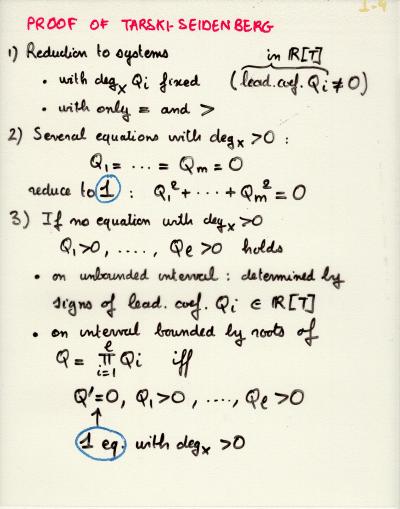 1-9
PROOF OF TARSKI-SEIDENBERG
1) Reduction to systems
in ℝ[T]
• with deg_x Qi fixed (lead. coef. Qi ≠ 0)
• with only = and >
2) Several equations with deg_x > 0 :
Q₁ = ... = Qm = 0
reduce to 1 : Q₁² + ... + Qm² = 0
3) If no equation with deg_x > 0
Q₁ > 0, ...., Qℓ > 0 holds
• on unbounded interval : determined by
signs of lead. coef. Qi ∈ ℝ[T]
• on interval bounded by roots of
Q = ∏_{i=1}^{ℓ} Qi iff
Q' = 0, Q₁ > 0, ...., Qℓ > 0
↑
1 eq. with deg_x > 0